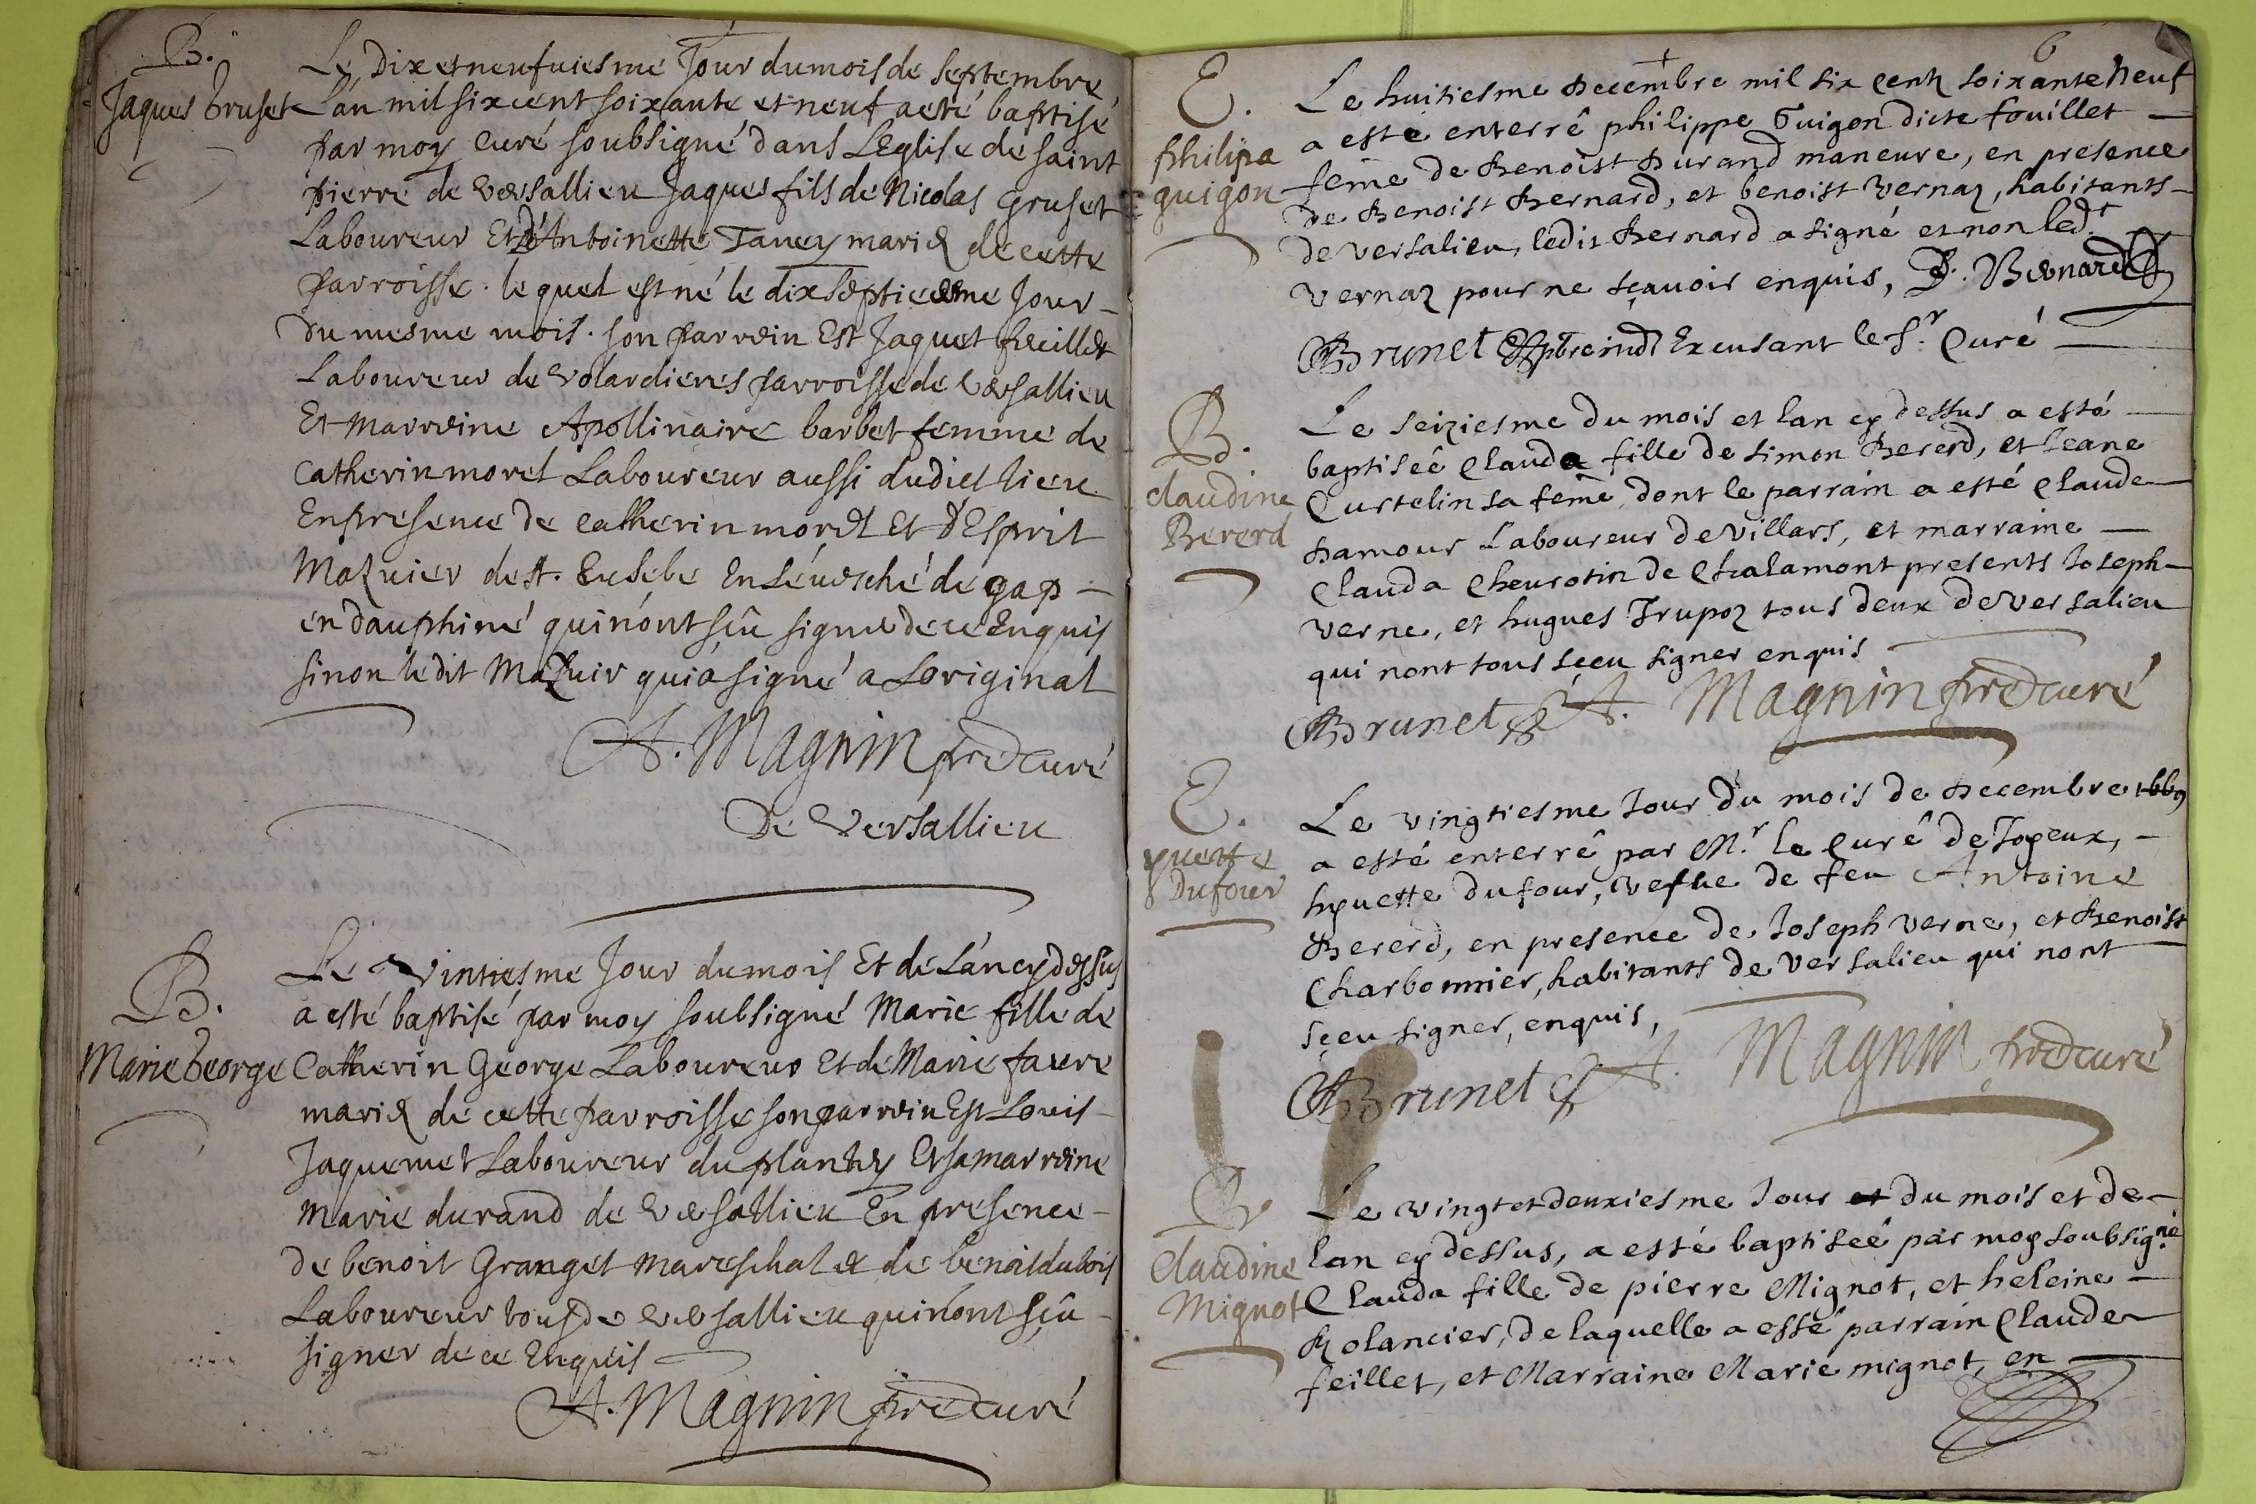 B.
Jaques Gruset
Le Dix et neufuiesme Jour du mois de Septembre
L'an mil six cent soixante et neuf a eté baptisé
par moy curé soubsigné dans L'Eglise de saint
pierre de versallieu Jaques fils de Nicolas Gruset
Laboureur Et d'Antoinette Taney mariés de cette
parroisse. le quel est né le dix septiesme Jour
du mesme mois. son parrein Est Jaquet feuillet
Laboureur de volardieres parroisse de versallieu
Et marreine Apollinaire barbet femme de
catherin morel Laboureur aussi dudict lieu
En presence de catherin morel Et d'Esprit
Mazuier de st. Eusebe En L'éuesché de gap
en dauphiné qui n'ont sçû signer de ce Enquis
sinon ledit Mazuir qui a signé a L'original
A. Magnin pre curé
De Versallieu
B.
Marie George
Le vintiesme Jour du mois Et de L'an cy dessus
a esté baptisé par moy soubsigné Marie fille de
Catherin George Laboureur Et de Marie favre
mariés de cette parroisse son parrein Est Louis
Jaquemet Laboureur du plantey Et sa marreine
Marie durand de versallieu En presence
de benoit Granget mareschal et de benoit dubois
Laboureur tous de versallieu qui n'ont sçû
signer de ce Enquis
A. Magnin pre curé
6
E.
philipa
guigon
Le huitiesme decembre mil six cents soixante neuf
a esté enterré philippe Guigon dicte fouillet
feme de Benoist Durand maneuvre, en presence
de Benoist Bernard, et benoist Vernaz, habitants
de Versalieu, ledit Bernard a signé et non led.t
Vernaz pour ne sçavoir enquis, B. Bernard
Brunet Excusant le Sr. Curé
B.
claudine
Bererd
Le seiziesme du mois et lan cy dessus a esté
baptiseé Clauda fille de Simon Bererd, et Jeane
Curtelin sa feme, dont le parrain a esté Claude
Damour Laboureur de Villars, et marraine
Clauda Cheurotin de Chalamont presents Joseph
Verne, et hugues Trupoz tous deux de Versalieu
qui nont tous sçeu signer enquis
Brunet A. Magnin pre curé
E.
yuette
Dufour
Le vingtiesme Jour du mois de Decembre 1669
a esté enterré par Mr. le Curé de Joyeux,
hyuette dufour, vefue de feu Antoine
Bererd, en presence de Joseph Verne, et Benoist
Charbonnier, habitants de Versalieu qui nont
sçeu signer, enquis,
Brunet A. Magnin pre curé
B
Claudine
Mignot
Le vingt et deuxiesme Jour et du mois et de
lan cy dessus, a esté baptiseé par moy soubsigné
Clauda fille de pierre Mignot, et heleine
Rolancier, de laquelle a esté parrain Claude
feillet, et Marraine Marie mignot, en